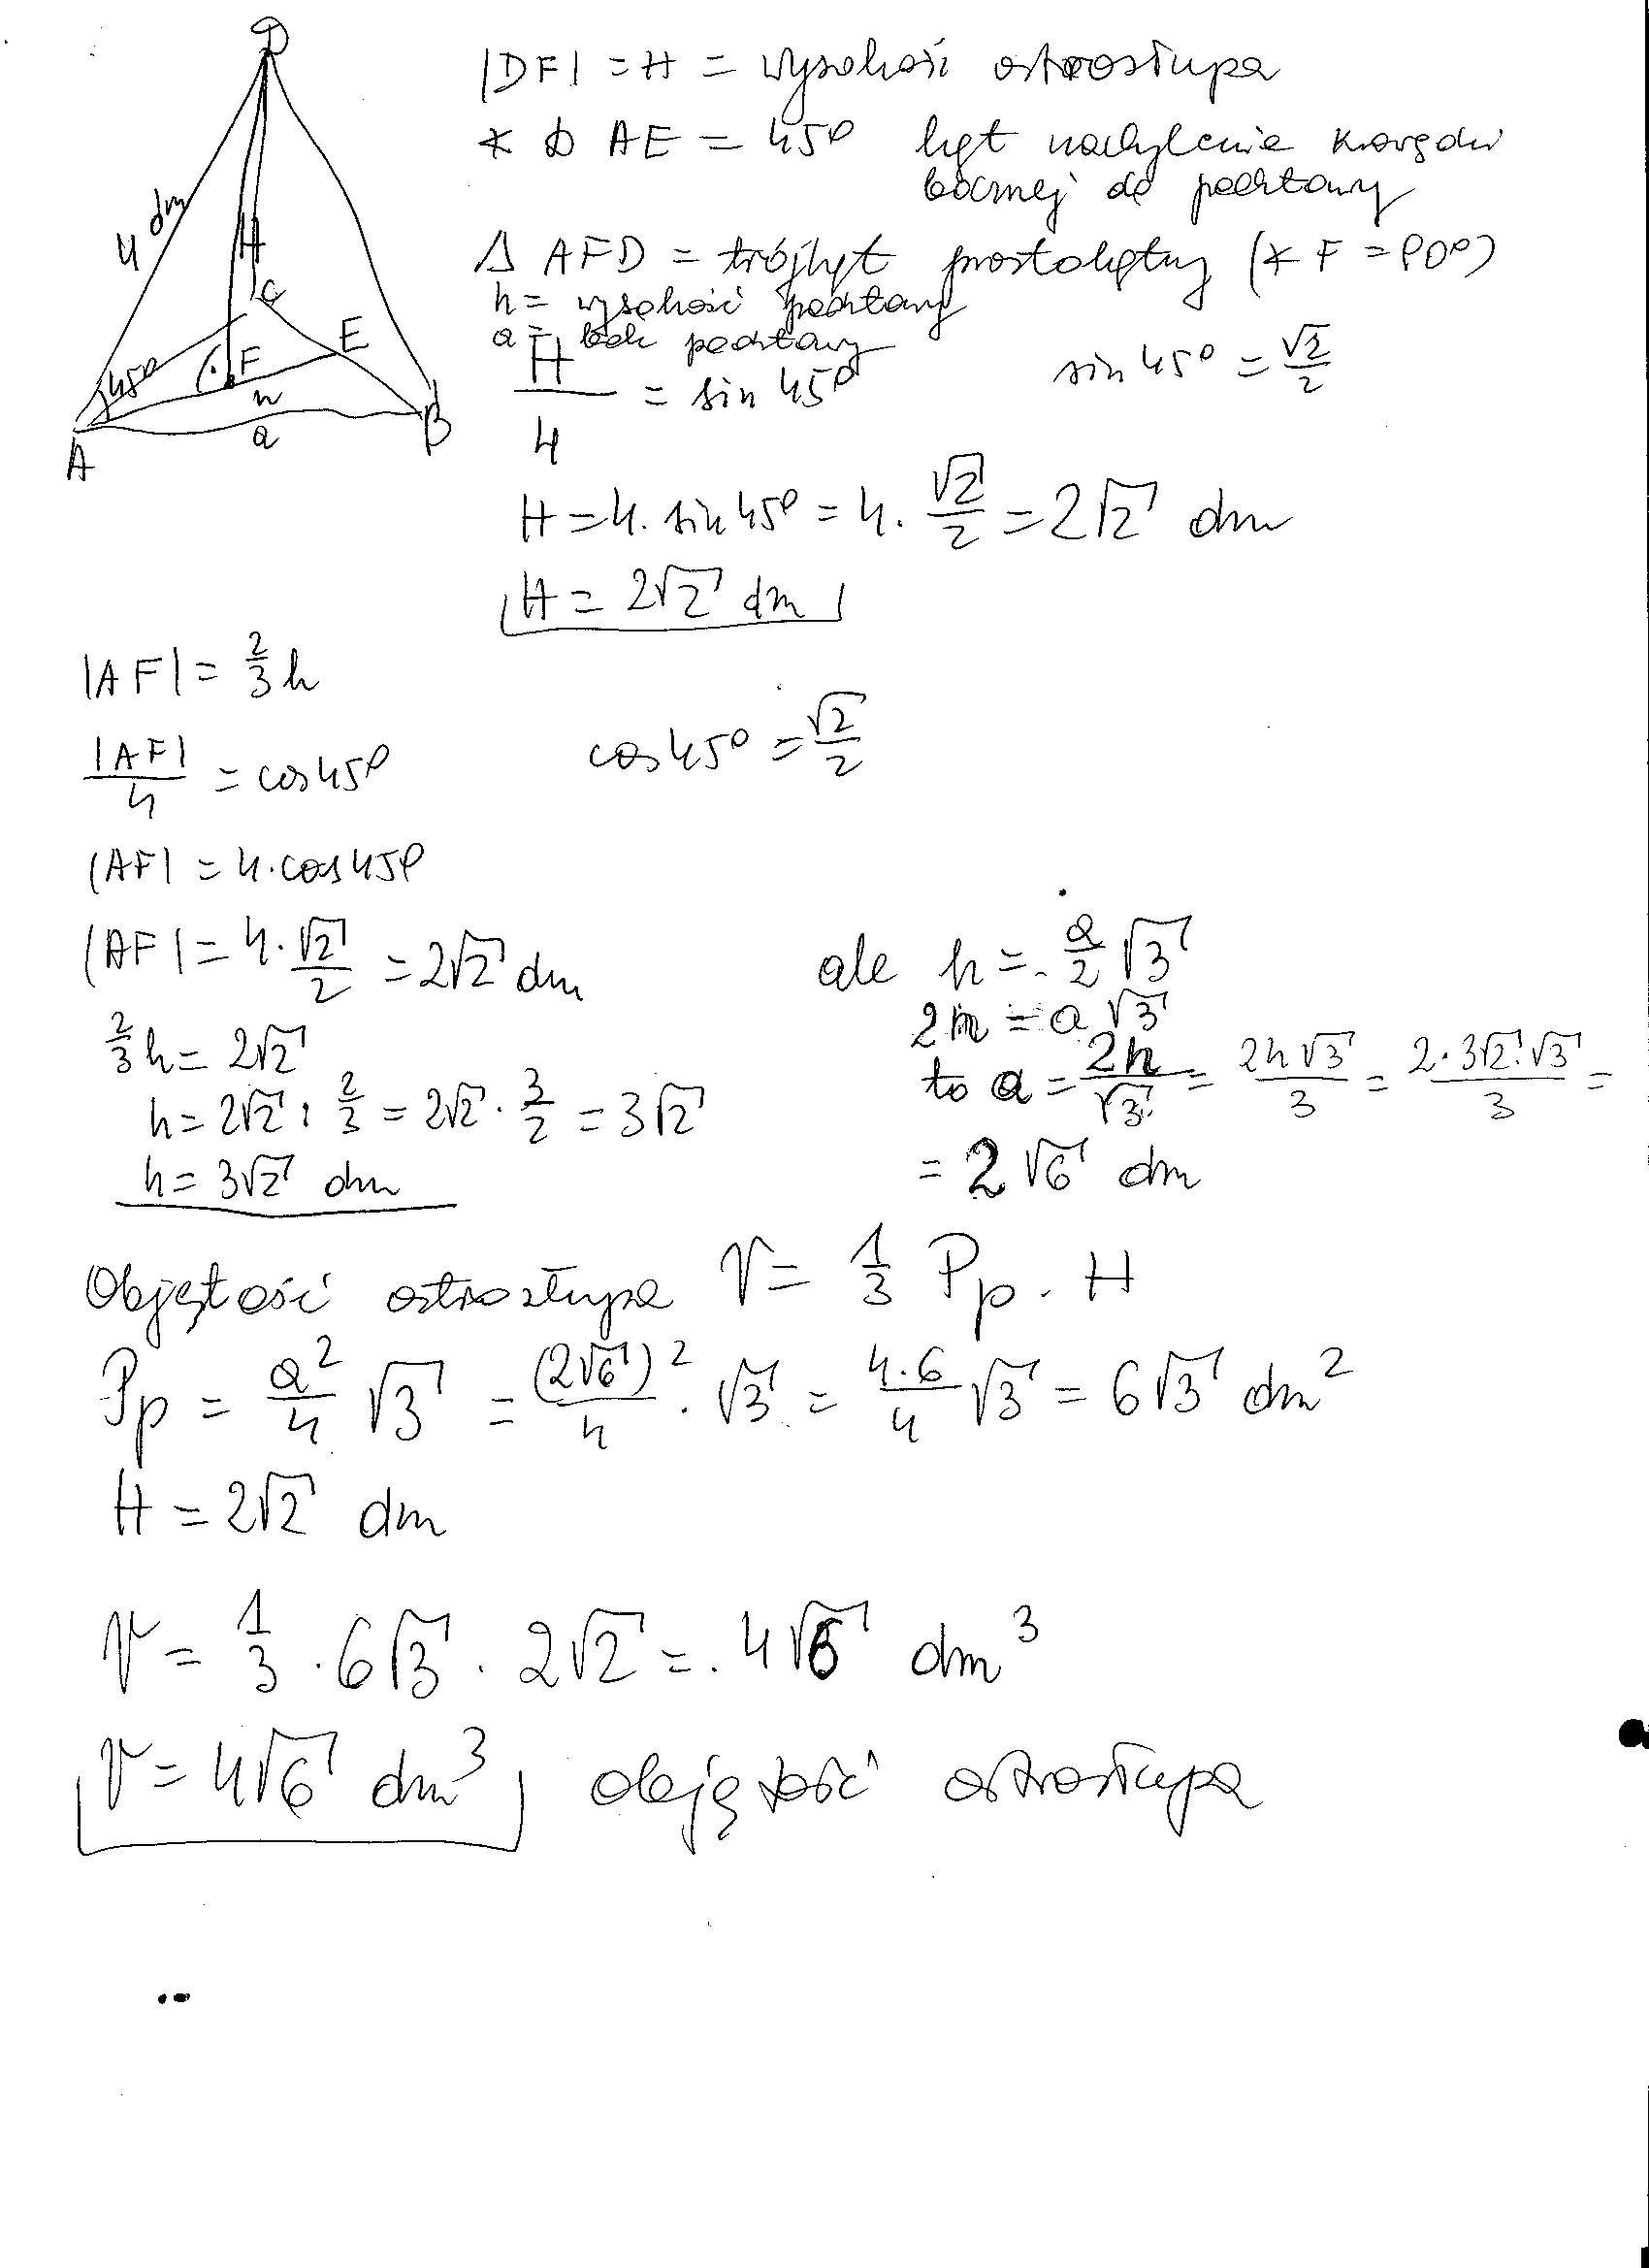 D
4 dm
H
C
E
45°
F
h
a
A
B
|DF| = H = wysokość ostrosłupa
∢ DAE = 45° kąt nachylenia krawędzi
bocznej do podstawy
Δ AFD = trójkąt prostokątny (∢ F = 90°)
h = wysokość podstawy
a = bok podstawy
H/4 = sin 45°
sin 45° = √2/2
H = 4 · sin 45° = 4 · √2/2 = 2√2 dm
H = 2√2 dm
|AF| = 2/3 h
|AF|/4 = cos 45°
cos 45° = √2/2
|AF| = 4 · cos 45°
|AF| = 4 · √2/2 = 2√2 dm
2/3 h = 2√2
h = 2√2 : 2/3 = 2√2 · 3/2 = 3√2
h = 3√2 dm
ale h = a/2 √3
2h = a √3
to a = 2h/√3 = 2h√3/3 = 2·3√2·√3/3 =
= 2√6 dm
Objętość ostrosłupa V = 1/3 Pp · H
Pp = a²/4 √3 = (2√6)²/4 · √3 = 4·6/4 √3 = 6√3 dm²
H = 2√2 dm
V = 1/3 · 6√3 · 2√2 = 4√6 dm³
V = 4√6 dm³ objętość ostrosłupa